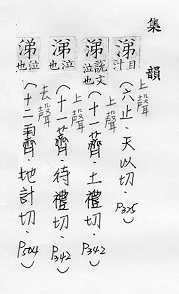 集韻
涕目汁 上聲(六止.天以切.P325)
涕說文泣也 上聲(十一薺.土禮切.P342)
涕泣也 上聲(十一薺.待禮切.P342)
涕泣也 去聲(十二霽.地計切.P504)